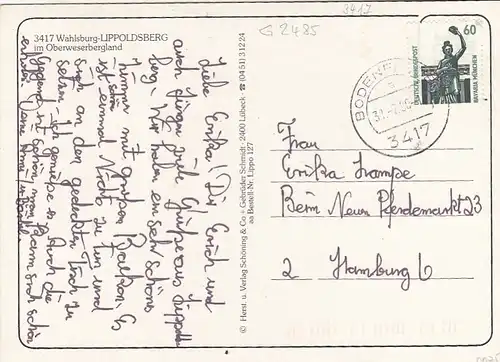 3417
G 2485
3417 Wahlsburg-LIPPOLDSBERG
im Oberweserbergland
Liebe Erika! Dir, Erich und
auch Jürgen viele Grüße aus Lippolds
berg. Wir haben ein sehr schönes
Zimmer mit großem Balkon. Es
ist schön einmal Nichts zu tun und
sich an den gedeckten Tisch zu
setzen. Ich genieße es. Auch die
Gegend ist schön, man kann sich schön
erholen. Deine
© Herst. u. Verlag Schöning & Co + Gebrüder Schmidt · 2400 Lübeck · ☎ (04 51) 3 12 24
Bestell-Nr. Lippo 127
60
DEUTSCHE BUNDESPOST
BAVARIA MÜNCHEN
BODENFELDE
3417
Frau
Erika Lampe
Beim Neuen Pferdemarkt 23
2 Hamburg 6